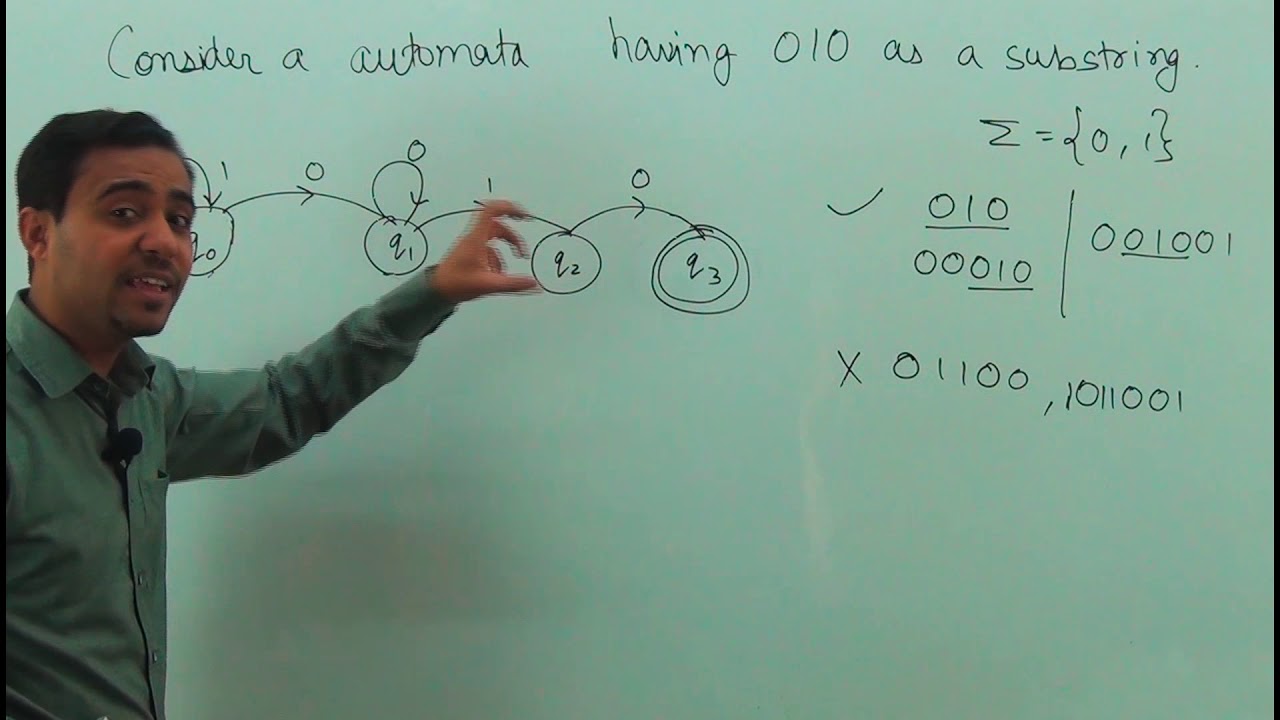 Consider a automata having 010 as a substring.
Σ = {0, 1}
1 0 0 1 0
q0 q1 q2 q3
✓ 010
00010
001001
X 01100, 1011001